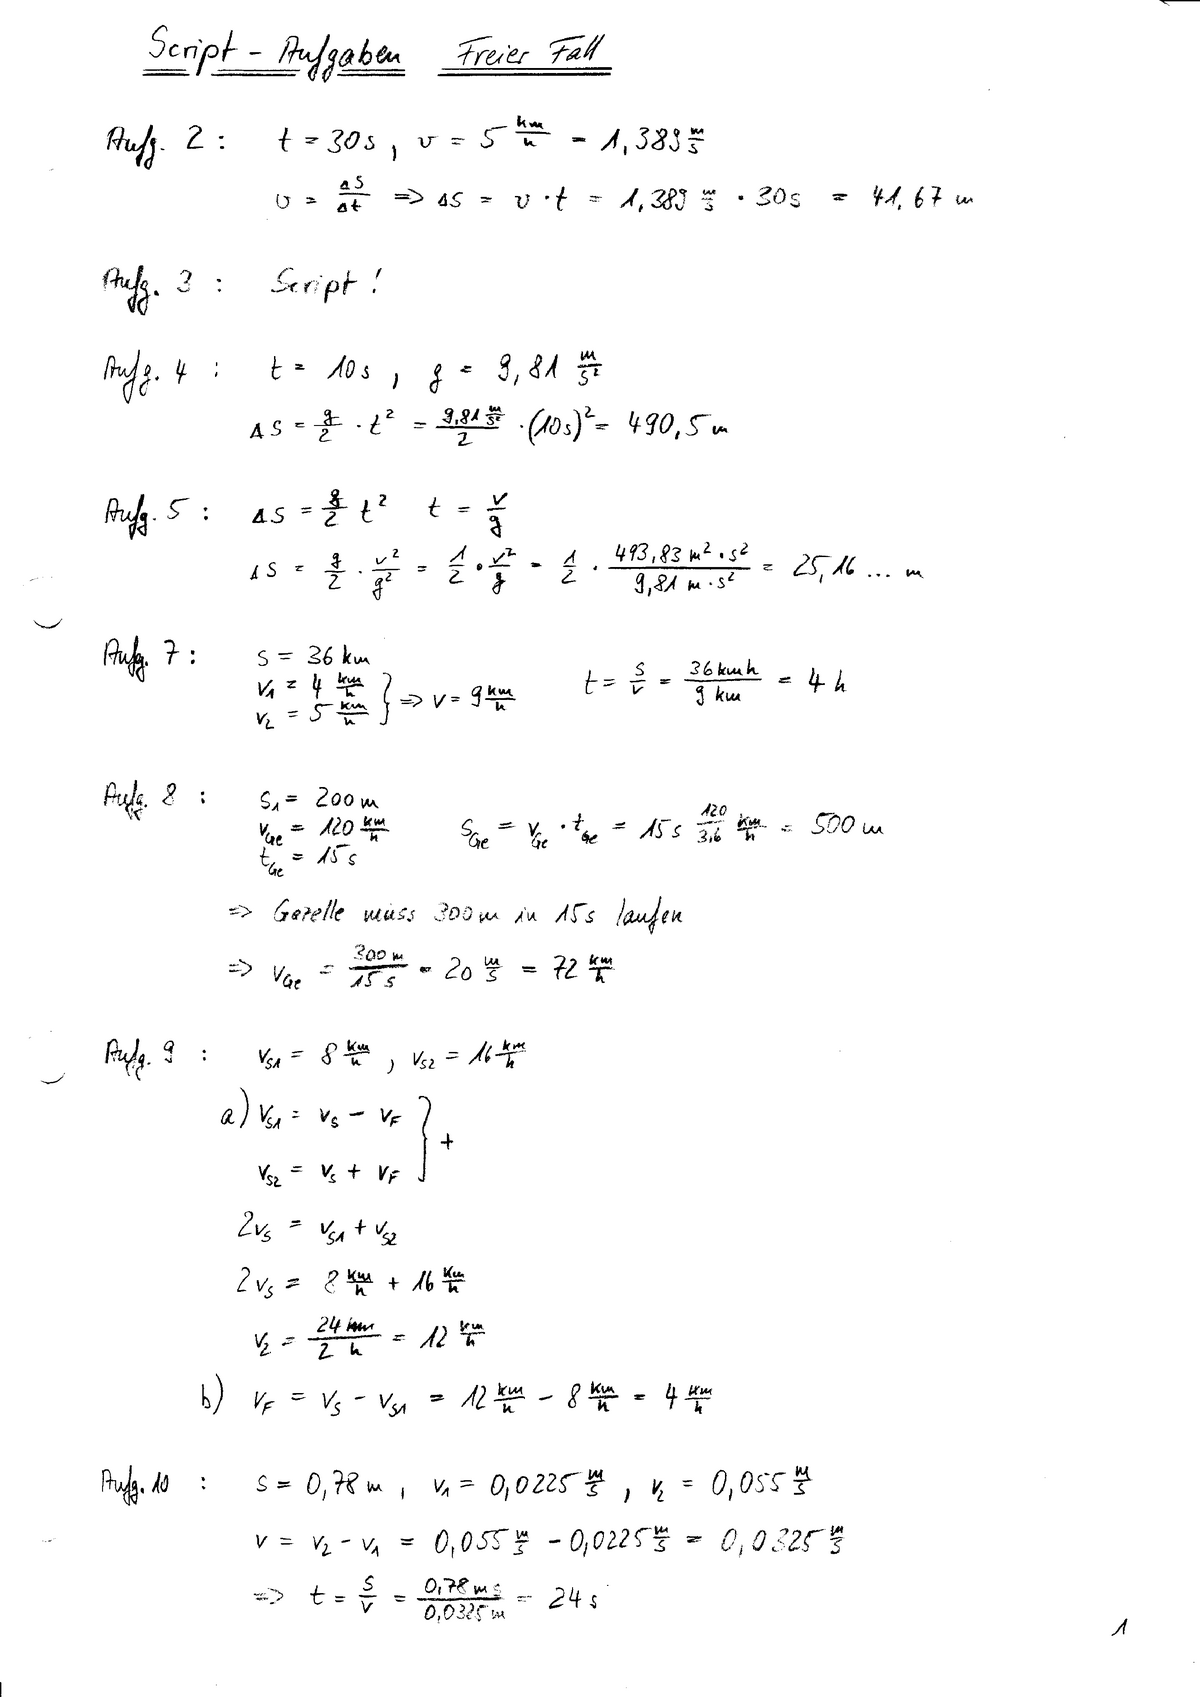 Script - Aufgaben Freier Fall
Aufg. 2 : t = 30s , v = 5 km/h = 1,389 m/s
v = ΔS/Δt => ΔS = v · t = 1,389 m/s · 30s = 41,67 m
Aufg. 3 : Script!
Aufg. 4 : t = 10s , g = 9,81 m/s²
ΔS = g/2 · t² = 9,81 m/s²/2 · (10s)² = 490,5 m
Aufg. 5 : ΔS = g/2 t² t = v/g
ΔS = g/2 · v²/g² = 1/2 · v²/g = 1/2 · 493,83 m² · s²/9,81 m · s² = 25,16 ... m
Aufg. 7 : s = 36 km
v1 = 4 km/h
v2 = 5 km/h } => v = 9 km/h t = s/v = 36 km h/9 km = 4 h
Aufg. 8 : s1 = 200 m
vGe = 120 km/h sGe = vGe · tGe = 15 s 120/3,6 km/h = 500 m
tGe = 15 s
=> Gazelle muss 300 m in 15s laufen
=> vGe = 300 m/15 s = 20 m/s = 72 km/h
Aufg. 9 : vS1 = 8 km/h , vS2 = 16 km/h
a) vS1 = vS - vF
} +
vS2 = vS + vF
2vS = vS1 + vS2
2vS = 8 km/h + 16 km/h
v2 = 24 km/2 h = 12 km/h
b) vF = vS - vS1 = 12 km/h - 8 km/h = 4 km/h
Aufg. 10 : s = 0,78 m , v1 = 0,0225 m/s , v2 = 0,055 m/s
v = v2 - v1 = 0,055 m/s - 0,0225 m/s = 0,0325 m/s
=> t = s/v = 0,78 m s/0,0325 m = 24 s
1